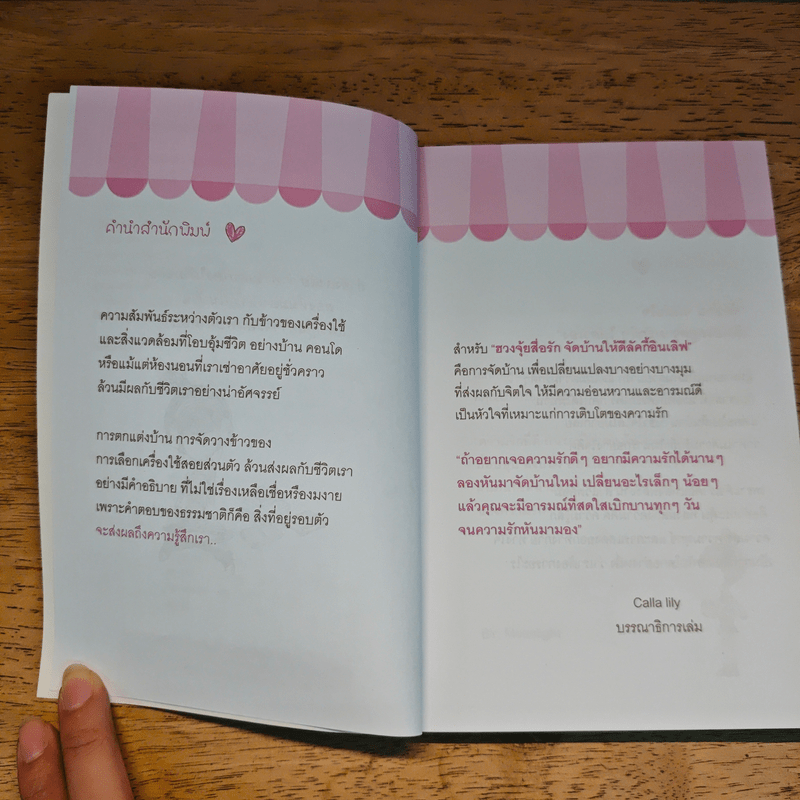 คำนำสำนักพิมพ์
ความสัมพันธ์ระหว่างตัวเรา กับข้าวของเครื่องใช้
และสิ่งแวดล้อมที่โอบอุ้มชีวิต อย่างบ้าน คอนโด
หรือแม้แต่ห้องนอนที่เราเช่าอาศัยอยู่ชั่วคราว
ล้วนมีผลกับชีวิตเราอย่างน่าอัศจรรย์
การตกแต่งบ้าน การจัดวางข้าวของ
การเลือกเครื่องใช้สอยส่วนตัว ล้วนส่งผลกับชีวิตเรา
อย่างมีคำอธิบาย ที่ไม่ใช่เรื่องเหลือเชื่อหรืองมงาย
เพราะคำตอบของธรรมชาติก็คือ สิ่งที่อยู่รอบตัว
จะส่งผลถึงความรู้สึกเรา..
สำหรับ "ฮวงจุ้ยสื่อรัก จัดบ้านให้ดีลัคกี้อินเลิฟ"
คือการจัดบ้าน เพื่อเปลี่ยนแปลงบางอย่างบางมุม
ที่ส่งผลกับจิตใจ ให้มีความอ่อนหวานและอารมณ์ดี
เป็นหัวใจที่เหมาะแก่การเติบโตของความรัก
"ถ้าอยากเจอความรักดีๆ อยากมีความรักได้นานๆ
ลองหันมาจัดบ้านใหม่ เปลี่ยนอะไรเล็กๆ น้อยๆ
แล้วคุณจะมีอารมณ์ที่สดใสเบิกบานทุกๆ วัน
จนความรักหันมามอง"
Calla lily
บรรณาธิการเล่ม